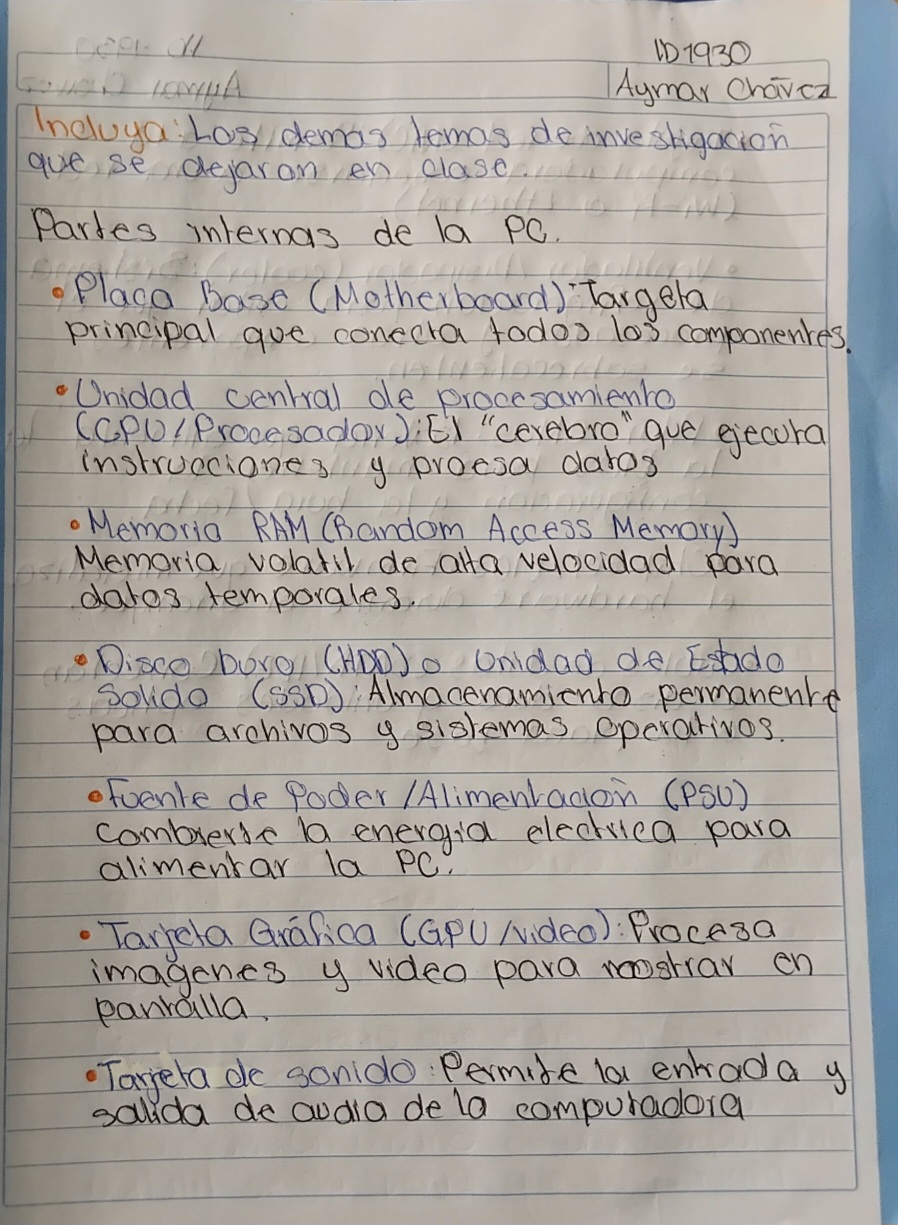 ID1930
Aymar Chávez
Incluya: Los demas temas de investigación
que se dejaron en clase.
Partes internas de la PC.
• Placa Base (Motherboard): Targeta
principal que conecta todos los componentes.
• Unidad central de procesamiento
(CPU/Procesador): El "cerebro" que ejecuta
instrucciones y proesa datos
• Memoria RAM (Random Access Memory)
Memoria volatil de alta velocidad para
datos temporales.
• Disco Duro (HDD) o Unidad de Estado
Solido (SSD): Almacenamiento permanente
para archivos y sistemas operativos.
• Fuente de Poder /Alimentación (PSU)
combierte la energia electrica para
alimentar la PC.
• Tarjeta Gráfica (GPU/video): Procesa
imagenes y video para mostrar en
pantalla.
• Tarjeta de sonido: Permite la entrada y
salida de audio de la computadora